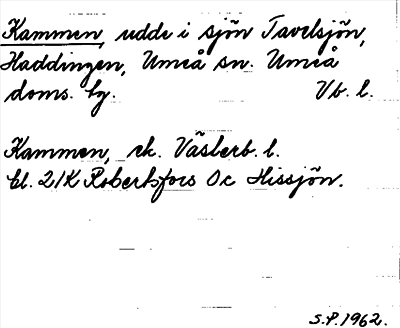 Kammen, udde i sjön Tavelsjön,
Haddingen, Umeå sn. Umeå
doms. hg. Vb. l.
Kammen, ek. Västerb. l.
bl. 21K Robertsfors Oc Hissjön.
S.P. 1962.